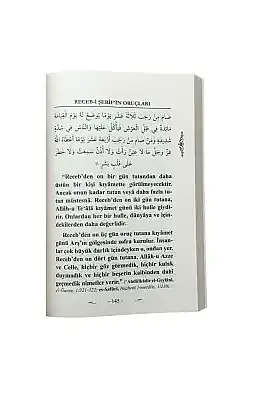 RECEB-İ ŞERÎF'İN ORUÇLARI
صَامَ مِنْ رَجَبَ ثَلَاثَةَ عَشَرَ يَوْمًا يُوضَعُ لَهُ يَوْمَ الْقِيَامَةِ
مَائِدَةٌ فِي ظِلِّ الْعَرْشِ فَيَأْكُلُ عَلَيْهَا وَالنَّاسُ فِي شِدَّةٍ
شَدِيدَةٍ وَمَنْ صَامَ مِنْ رَجَبَ أَرْبَعَةَ عَشَرَ يَوْمًا أَعْطَاهُ اللّٰهُ
عَزَّ وَجَلَّ مَا لَا عَيْنٌ رَأَتْ وَلَا أُذُنٌ سَمِعَتْ وَلَا خَطَرَ
عَلَى قَلْبِ بَشَرٍ
"Receb'den on bir gün tutandan daha
üstün bir kişi kıyâmette görülmeyecektir.
Ancak onun kadar tutan veyâ daha fazla tu-
tan müstesnâ. Receb'den on iki gün tutana,
Allâh-u Te'âlâ kıyâmet günü iki hulle giydi-
rir. Onlardan her bir hulle, dünyâya ve için-
dekilerden daha değerlidir.
Receb'den on üç gün oruç tutana kıyâmet
günü Arş'ın gölgesinde sofra kurulur. İnsan-
lar çok büyük darlık içindeyken o, ondan yer.
Receb'den on dört gün tutana, Allâh-u Azze
ve Celle, hiçbir göz görmedik, hiçbir kulak
duymadık ve hiçbir beşerin kalbinden dahi
geçmedik nimetler verir." (Abdülkâdir el-Geylânî,
el-Gunye,
- 145 -